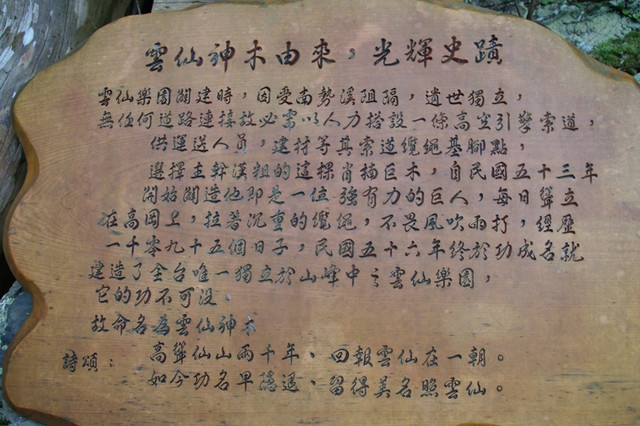 雲仙神木由來，光輝史蹟
雲仙樂園闢建時，因受南勢溪阻隔，遺世獨立，
無任何道路連接故必需以人力搭設一條高空引擎索道，
供運送人員，建材等其索道纜繩基腳點，
選擇主幹漢粗的這棵肖楠巨木，自民國五十三年
開始闢造他即是一位強有力的巨人，每日聳立
在高岡上，拉著沉重的纜繩，不畏風吹雨打，經歷
一千零九十五個日子，民國五十六年終於功成名就
建造了全台唯一獨立於山峰中之雲仙樂園，
它的功不可沒
故命名為雲仙神木
詩頌：
高聳仙山兩千年、回報雲仙在一朝。
如今功名早隱退、留得美名照雲仙。